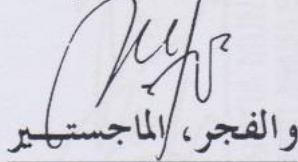 والفجر، الماجستير